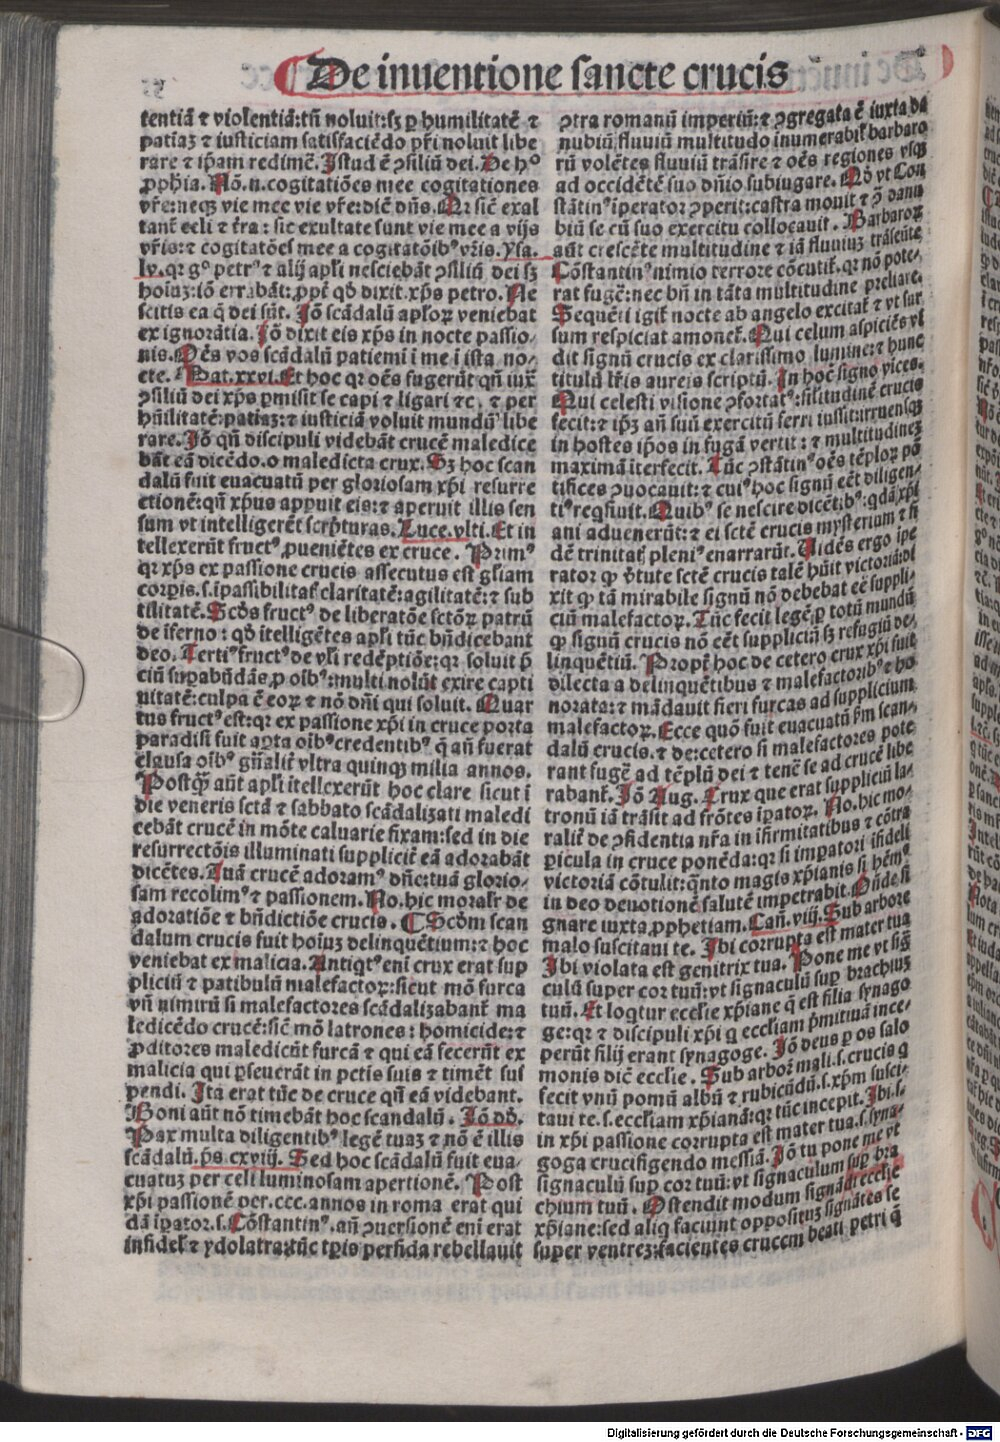 De inuentione sancte crucis
tentiā ⁊ violentiā: tñ noluit: sꝫ ꝑ humilitatē ⁊
patiaꝫ ⁊ iusticiam satisfaciēdo pr̄i noluit libe
rare ⁊ ip̄am redimē. Istud ē ꝯsiliū dei. De hº
ꝓpħia. Nō.n. cogitatiōes mee cogitationes
vr̄e: neqꝫ vie mee vie vr̄e: dic̄ dn̄s. Qr sic̄ exal
tant̄ celi ⁊ t̄ra: sic exultate sunt vie mee a vijs
vr̄is: ⁊ cogitatōes mee a cogitatōibꝰ vr̄is. ysa.
lv. qr gº petrꝰ ⁊ alij apl̄i nesciebāt ꝯsiliū dei sꝫ
hoīuꝫ: iō errabāt: ꝓpt̄ qd̄ dixit xp̄s petro. Ne
scitis ea q̄ dei sūt. Iō scādalū apl̄oꝝ veniebat
ex ignorātia. Iō dixit eis xp̄s in nocte passio-
nis. Oēs vos scādalū patiemī ī me ī ista no-
cte. Mat. xxvi. Et hoc qr oēs fugerūt qn̄ iux̄
ꝯsiliū dei xp̄s ꝑmisit se capi ⁊ ligari ⁊c. ⁊ per
hūilitatē: patiaꝫ: ⁊ iusticiā voluit mundū libe
rare. Iō qn̄ discipuli videbāt crucē maledice
bāt eā dicēdo. o maledicta crux. Sꝫ hoc scan
dalū fuit euacuatū per gloriosam xp̄i resurre
ctionē: qn̄ xp̄us appuit eis: ⁊ aperuit illis sen
sum vt intelligerēt scrp̄turas. Luce. vlti. Et in
tellexerūt fructꝰ ꝓueniētes ex cruce. Primꝰ
qr xp̄s ex passione crucis assecutus est gl̄iam
corp̄is. s. īpassibilitat̄ claritatē: agilitatē: ⁊ sub
tilitatē. Scd̄s fructꝰ de liberatōe sctōꝝ patrū
de īferno: qd̄ ītelligētes apl̄i tūc bn̄dicebant
deo. Tertiꝰ fructꝰ de vl̄i redēptiōe: qr soluit p̄
ciū suꝑabūdās, ꝓ oībꝰ: multi nolūt exire capti
uitatē: culpa ē eoꝝ ⁊ nō dn̄i qui soluit. Quar
tus fructꝰ est: qr ex passione xp̄i in cruce porta
paradisi fuit aꝑta oībꝰ credentibꝰ q̄ an̄ fuerat
clausa oībꝰ gn̄alit̄ vltra quinqꝫ milia annos.
Postq̄ꝫ aūt apl̄i ītellexerūt hoc clare sicut ī
die veneris sctā ⁊ sabbato scādalizati maledi
cebāt crucē in mōte caluarie fixam: sed in die
resurrectōis illuminati supplicit̄ eā adorabāt
dicētes. Tuā crucē adoramꝰ dn̄e: tuā glorio-
sam recolimꝰ ⁊ passionem. No. hic moralr̄ de
adoratiōe ⁊ bn̄dictiōe crucis. ¶ Scd̄m scan
dalum crucis fuit hoīuꝫ delinquētium: ⁊ hoc
veniebat ex malicia. Antiqtꝰ eni crux erat sup
pliciū ⁊ patibulū malefactoꝝ: sicut mō furca
vn̄ nimirū si malefactores scādalizabant̄ ma
ledicēdo crucē: sic̄ mō latrones: homicide: ⁊
ꝓditores maledicūt furcā ⁊ qui eā fecerūt ex
malicia qui ꝑseuerāt in pctis suis ⁊ timēt sus
pendi. Ita erat tūc de cruce qn̄ eā videbant.
Boni aūt nō timebāt hoc scandalū. Iō dd̄.
Pax multa diligentibꝰ legē tuaꝫ ⁊ nō ē illis
scādalū. ps̄. cxviij. Sed hoc scādalū fuit eua-
cuatuꝫ per celi luminosam apertionē. Post
xp̄i passionē per. ccc. annos in roma erat qui
dā īꝑator. s. Cōstantinꝰ. an̄ ꝯuersionē eni erat
infidel' ⁊ ydolatra: ⁊ tūc tp̄is perfida rebellauit
ꝯtra romanū imperiū: ⁊ ꝯgregata ē iuxta da
nubiū, fluuiū multitudo inumerabil' barbaro
rū volētes fluuiū trāsire ⁊ oēs regiones vsqꝫ
ad occidētē suo dn̄io subiugare. Qd̄ vt Con
stātinꝰ iperator ꝯperit: castra mouit ⁊ ꝓ danu
biū se cū suo exercitu collocauit. Barbaroꝝ
aūt crescēte multitudine ⁊ iā fluuiuꝫ trāseūte,
Cōstantinꝰ nimio terrore cōcutit̄. qr nō pote-
rat fugē: nec bn̄ in tāta multitudine preliare.
Sequēti igit̄ nocte ab angelo excitat̄ ⁊ vt sur
sum respiciat amonet̄. Qui celum aspiciēs vi
dit signū crucis ex clarissimo lumine: ⁊ hunc
titulū lr̄is aureis scriptū. In hoc signo vīces.
Qui celesti visione ꝯfortatꝰ: silitudinē crucis
fecit: ⁊ ip̄ꝫ an̄ suū exercitū ferri iussit: irruensqꝫ
in hostes ip̄os in fugā vertit: ⁊ multitudineꝫ
maximā īterfecit. Tūc ꝯstātinꝰ oēs tēploꝝ pō
tifices ꝯuocauit: ⁊ cuiꝰ hoc signū eēt diligen-
tiꝰ reqsiuit. Quibꝰ se nescire dicētibꝰ: qdā xp̄i
ani aduenerūt: ⁊ ei sctē crucis mysterium ⁊ fi
dē trinitat̄ pleniꝰ enarrarūt. Uidēs ergo īpe
rator qꝫ v̄tute sctē crucis talē hūit victoriā: di
xit qꝫ tā mirabile signū nō debebat eē suppli-
ciū malefactoꝝ. Tūc fecit legē ꝑ totū mundū
qꝫ signū crucis nō eēt suppliciū sꝫ refugiū de-
linquētiū. Propt̄ hoc de cetero crux xp̄i fuit
dilecta a delinquētibus ⁊ malefactoribꝰ ⁊ ho
norata: ⁊ mādauit fieri furcas ad supplicium
malefactoꝝ. Ecce quō fuit euacuatū ꝑm scan-
dalū crucis. ⁊ de: cetero si malefactores pote
rant fugē ad tēplū dei ⁊ tenē se ad crucē libe
rabant̄. Iō Aug. Crux que erat suppliciū la-
tronū iā trāsit ad frōtes īꝑatoꝝ. No. hic mo-
ralit̄ de ꝯfidentia nr̄a in īfirmitatibus ⁊ cōtra
ꝑicula in cruce ponēda: qr si imꝑatori īfideli
victoriā cōtulit: qn̄to magis xp̄ianis si hēmꝰ
in deo deuotionē salutē impetrabit. Un̄de si
gnare iuxta, ꝓphetiam. Cañ. viij. Sub arbore
malo suscitaui te. Ibi corrupta est mater tua
Ibi violata est genitrix tua. Pone me vt sig̃
culū super cor tuū: vt signaculū suꝑ brachiuꝫ
tuū. Et loqtur eccl̄ie xp̄iane q̄ est filia synago
ge: qr ⁊ discipuli xp̄i q eccl̄iam p̄mitiuā ince-
perūt filij erant synagoge. Iō deus ꝑ os salo
monis dic̄ eccl̄ie. Sub arboꝝ mali. s. crucis q
fecit vnū pomū albū ⁊ rubicūdū. s. xp̄m susci-
taui te. s. eccl̄iam xp̄ianā: qr tūc incepit. Ibi. s.
in xp̄i passione corrupta est mater tua. s. syna-
goga crucifigendo messiā. Iō tu pone me vt
signaculū suꝑ cor tuū: vt signaculum suꝑ bra
chium tuū. Ostendit modum signādi eccl̄ie
xp̄iane: sed aliq faciunt opposituꝫ signātes se
super ventreꝫ: facientes crucem beati petri q̄
Digitalisierung gefördert durch die Deutsche Forschungsgemeinschaft - DFG